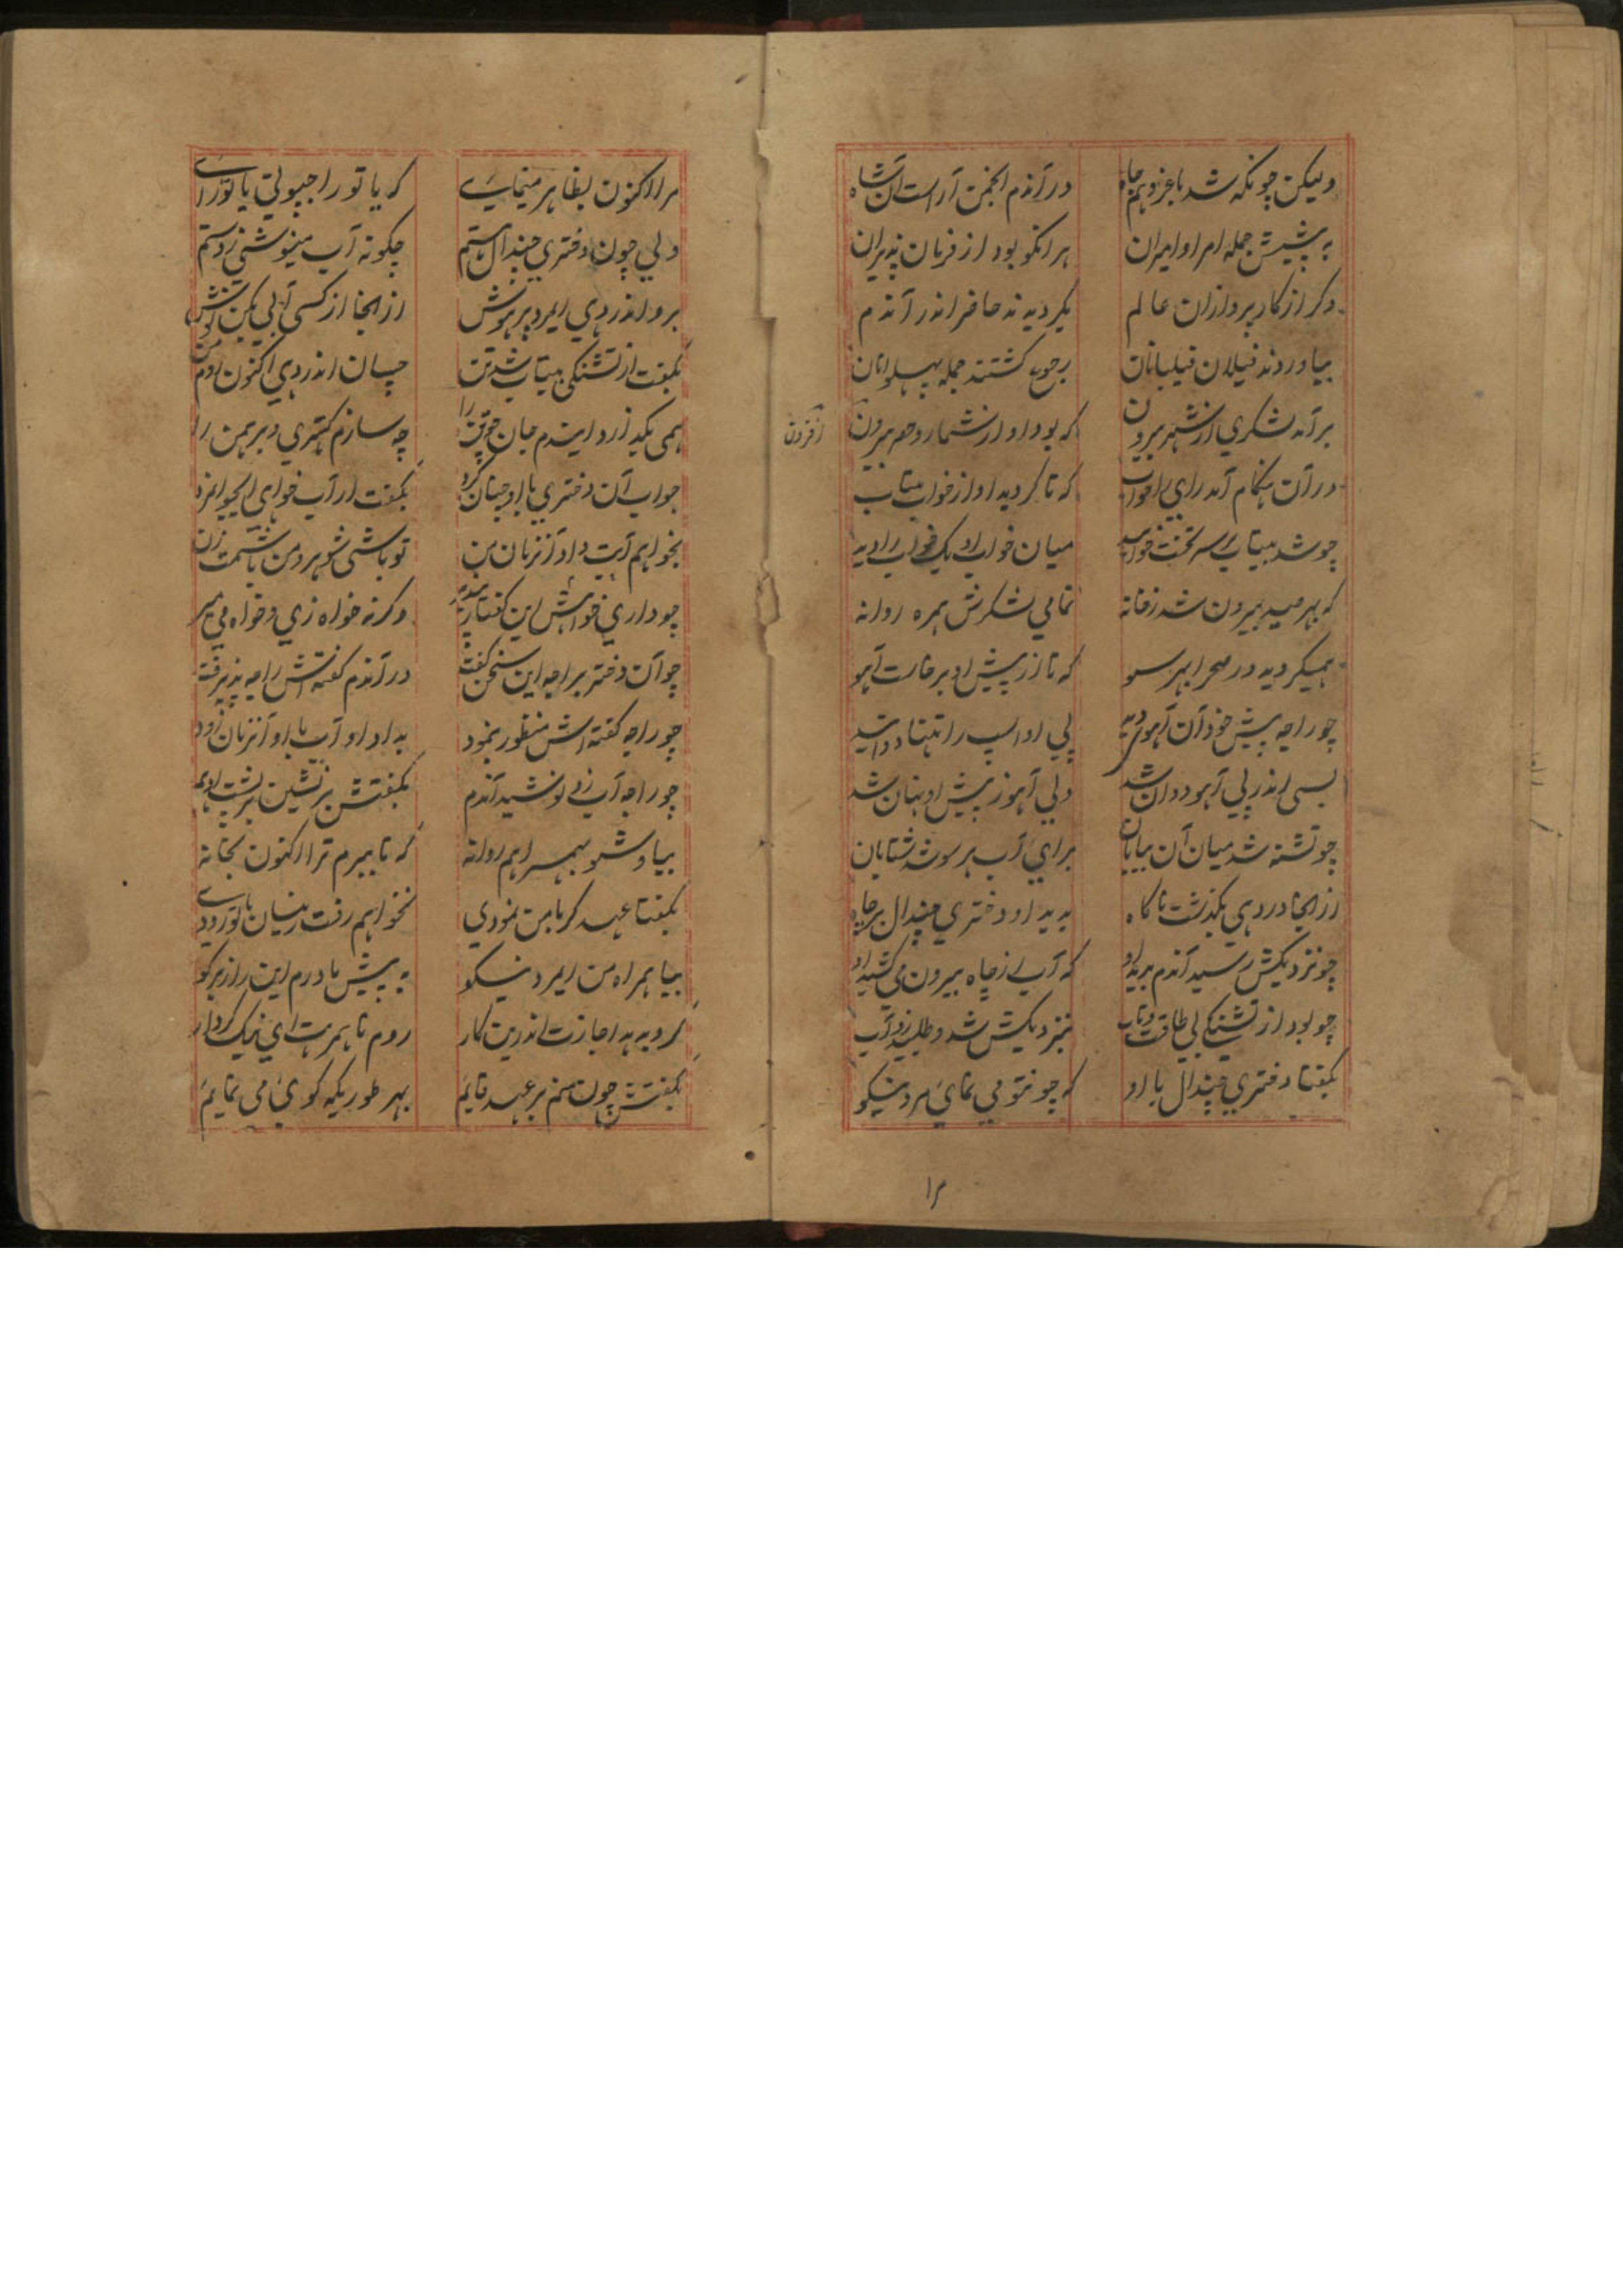 ولیکن چونکه شد با عز و هم جاه درآندم انجمن آراست آن شاه
به پیشش جمله امرا و امیران هر انکو بود از فرمان پذیران
دکر از کار پردازان عالم بکردیدند حاضر اندر آندم
بیاوردند فیلان فیلبانان رجوع کشتند جمله پهلوانان
برآمد لشکری از شهر بیرون که بود او از شمار و حصر بیرون
افزون
در آن هنکام آمد رای را خواب که تا کردید او از خواب بیتاب
چو شد بیتاب بر سر تخت خوابید میان خواب او یک خواب را دید
که بهر صید بیرون شد ز خانه تمامی لشکرش همره روانه
همیکردید در صحرا بهر سو که تا از پیش او برخاست آهو
چو راجه پیش خود آن آهوی دید پی او اسپ را تنها دوانید
بسی اندر پی آهو دوان شد ولی آهو ز پیش او نهان شد
چو تشنه شد میان آن بیابان برای آب هر سو شد شتابان
از انجا در دهی بکذشت ناکاه بدید او دختری چندال بر چاه
چو نزدیکش رسید آندم بدید او که آب از چاه بیرون می کشید او
چو بود از تشنکی بی طاقت و تاب بنزدیکش شد و طلبید زو آب
بکفتا دختری چندال با او که چون تو می نمای مرد نیکو
۱۲
مرا اکنون بظاهر مینمایی که یا تو راجپوتی یا تو رای
ولی چون دختری چندال هستم چکونه آب مینوشی ز دستم
برو اندر دهی ای مرد پر هوش از انجا از کسی آبی بکن نوش
بکفت از تشنکی بیتاب شد تن چسان اندر دهی اکنون روم من
همی بکذارد ایندم جان تن را چه سازم کهتری و برهمن را
جواب آن دختری با او چنان کرد بکفت ار آب خواهی ای جوانمرد
بخواهم آبت داد آنزمان من تو باشی شوهر و من باشمت زن
چو داری خواهش این کفتار بپذیر وکرنه خواه زی و خواه می میر
چو آن دختر براجه این سخن کفت درآندم کفته اش راجه پذیرفت
چو راجه کفته اش منظور بنمود بداد او آب با او آنزمان زود
چو راجه آب زو نوشید آندم بکفتش بر نشین بر پشت ادهم
بیا و شو بهمراهم روانه که تا ببرم ترا اکنون بخانه
بکفتا عهد کر با من نمودی نخواهم رفت زینسان با تو زودی
بیا همراه من ای مرد نیکو به پیش مادرم این راز بر کو
کر او بدهد اجازت اندرین کار روم تا همرهت ای نیک کردار
بکفتش چون منم بر عهد قایم بهر طوریکه کوی می نمایم